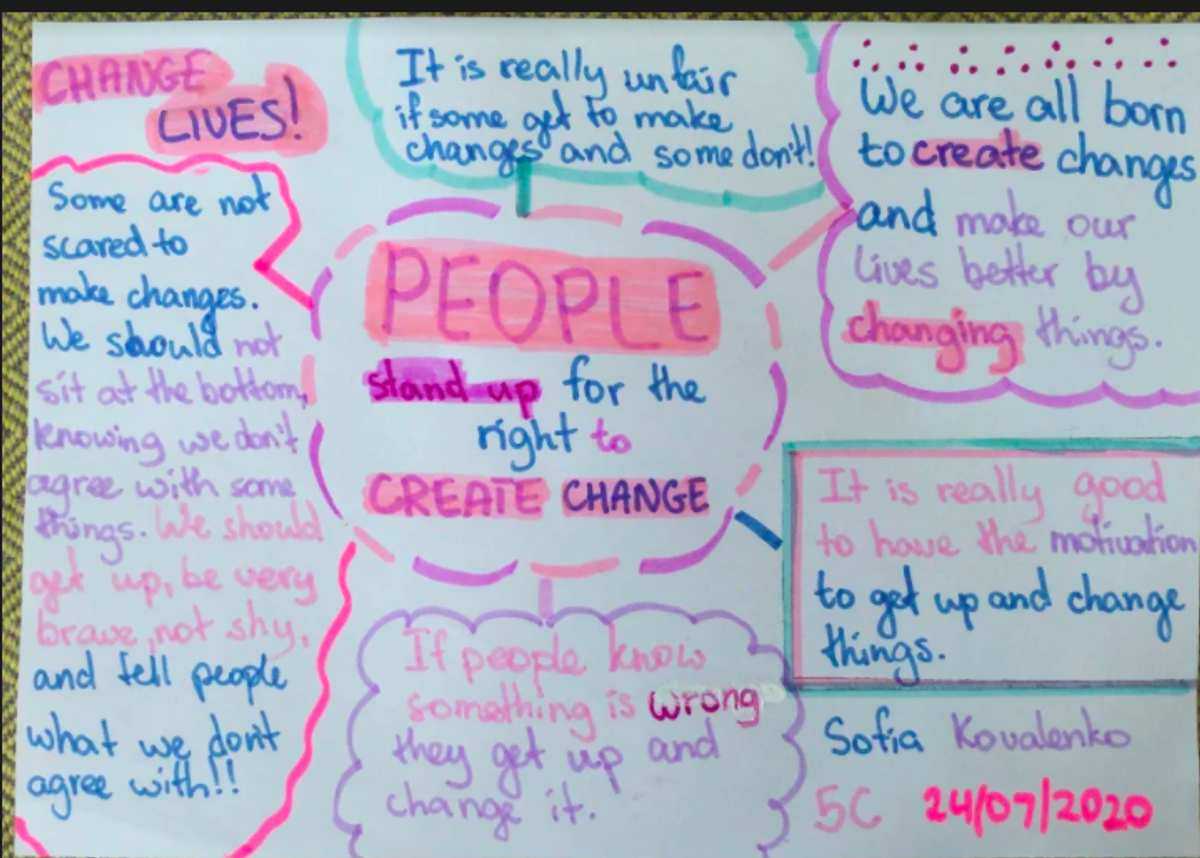 CHANGE
LIVES!
Some are not
scared to
make changes.
We should not
sit at the bottom,
knowing we don't
agree with some
things. We should
get up, be very
brave, not shy,
and tell people
what we don't
agree with!!
It is really unfair
if some get to make
changes and some don't!
PEOPLE
stand up for the
right to
CREATE CHANGE
If people know
something is wrong
they get up and
change it.
We are all born
to create changes
and make our
lives better by
changing things.
It is really good
to have the motivation
to get up and change
things.
Sofia Kovalenko
5C 24/07/2020